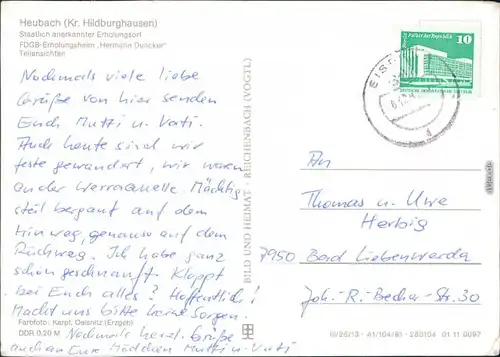 Heubach (Kr. Hildburghausen)
Staatlich anerkannter Erholungsort
FDGB-Erholungsheim „Hermann Duncker"
Teilansichten
Nochmals viele liebe
Grüße von hier senden
Euch Mutti u. Vati.
Auch heute sind wir
feste gewandert, wir waren
an der Werraquelle. Mächtig
steil bergauf auf dem
Hinweg, genauso auf dem
Rückweg. Ich habe ganz
schön geschnauft. Klappt
bei Euch alles? Hoffentlich!
Macht uns bitte keine Sorgen.
Nochmals herzl. Grüße
auch an Eure Mädchen Mutti u. Vati
Farbfoto: Karpf, Oelsnitz (Erzgeb)
DDR 0,20 M
BILD UND HEIMAT · REICHENBACH (VOGTL)
Palast der Republik
10
EISF
An
Thomas u. Uwe
Herbig
7950 Bad Liebenwerda
Joh.-R.-Becher-Str. 30
III/26/13 · A1/104/81 · 280104 01 11 0097